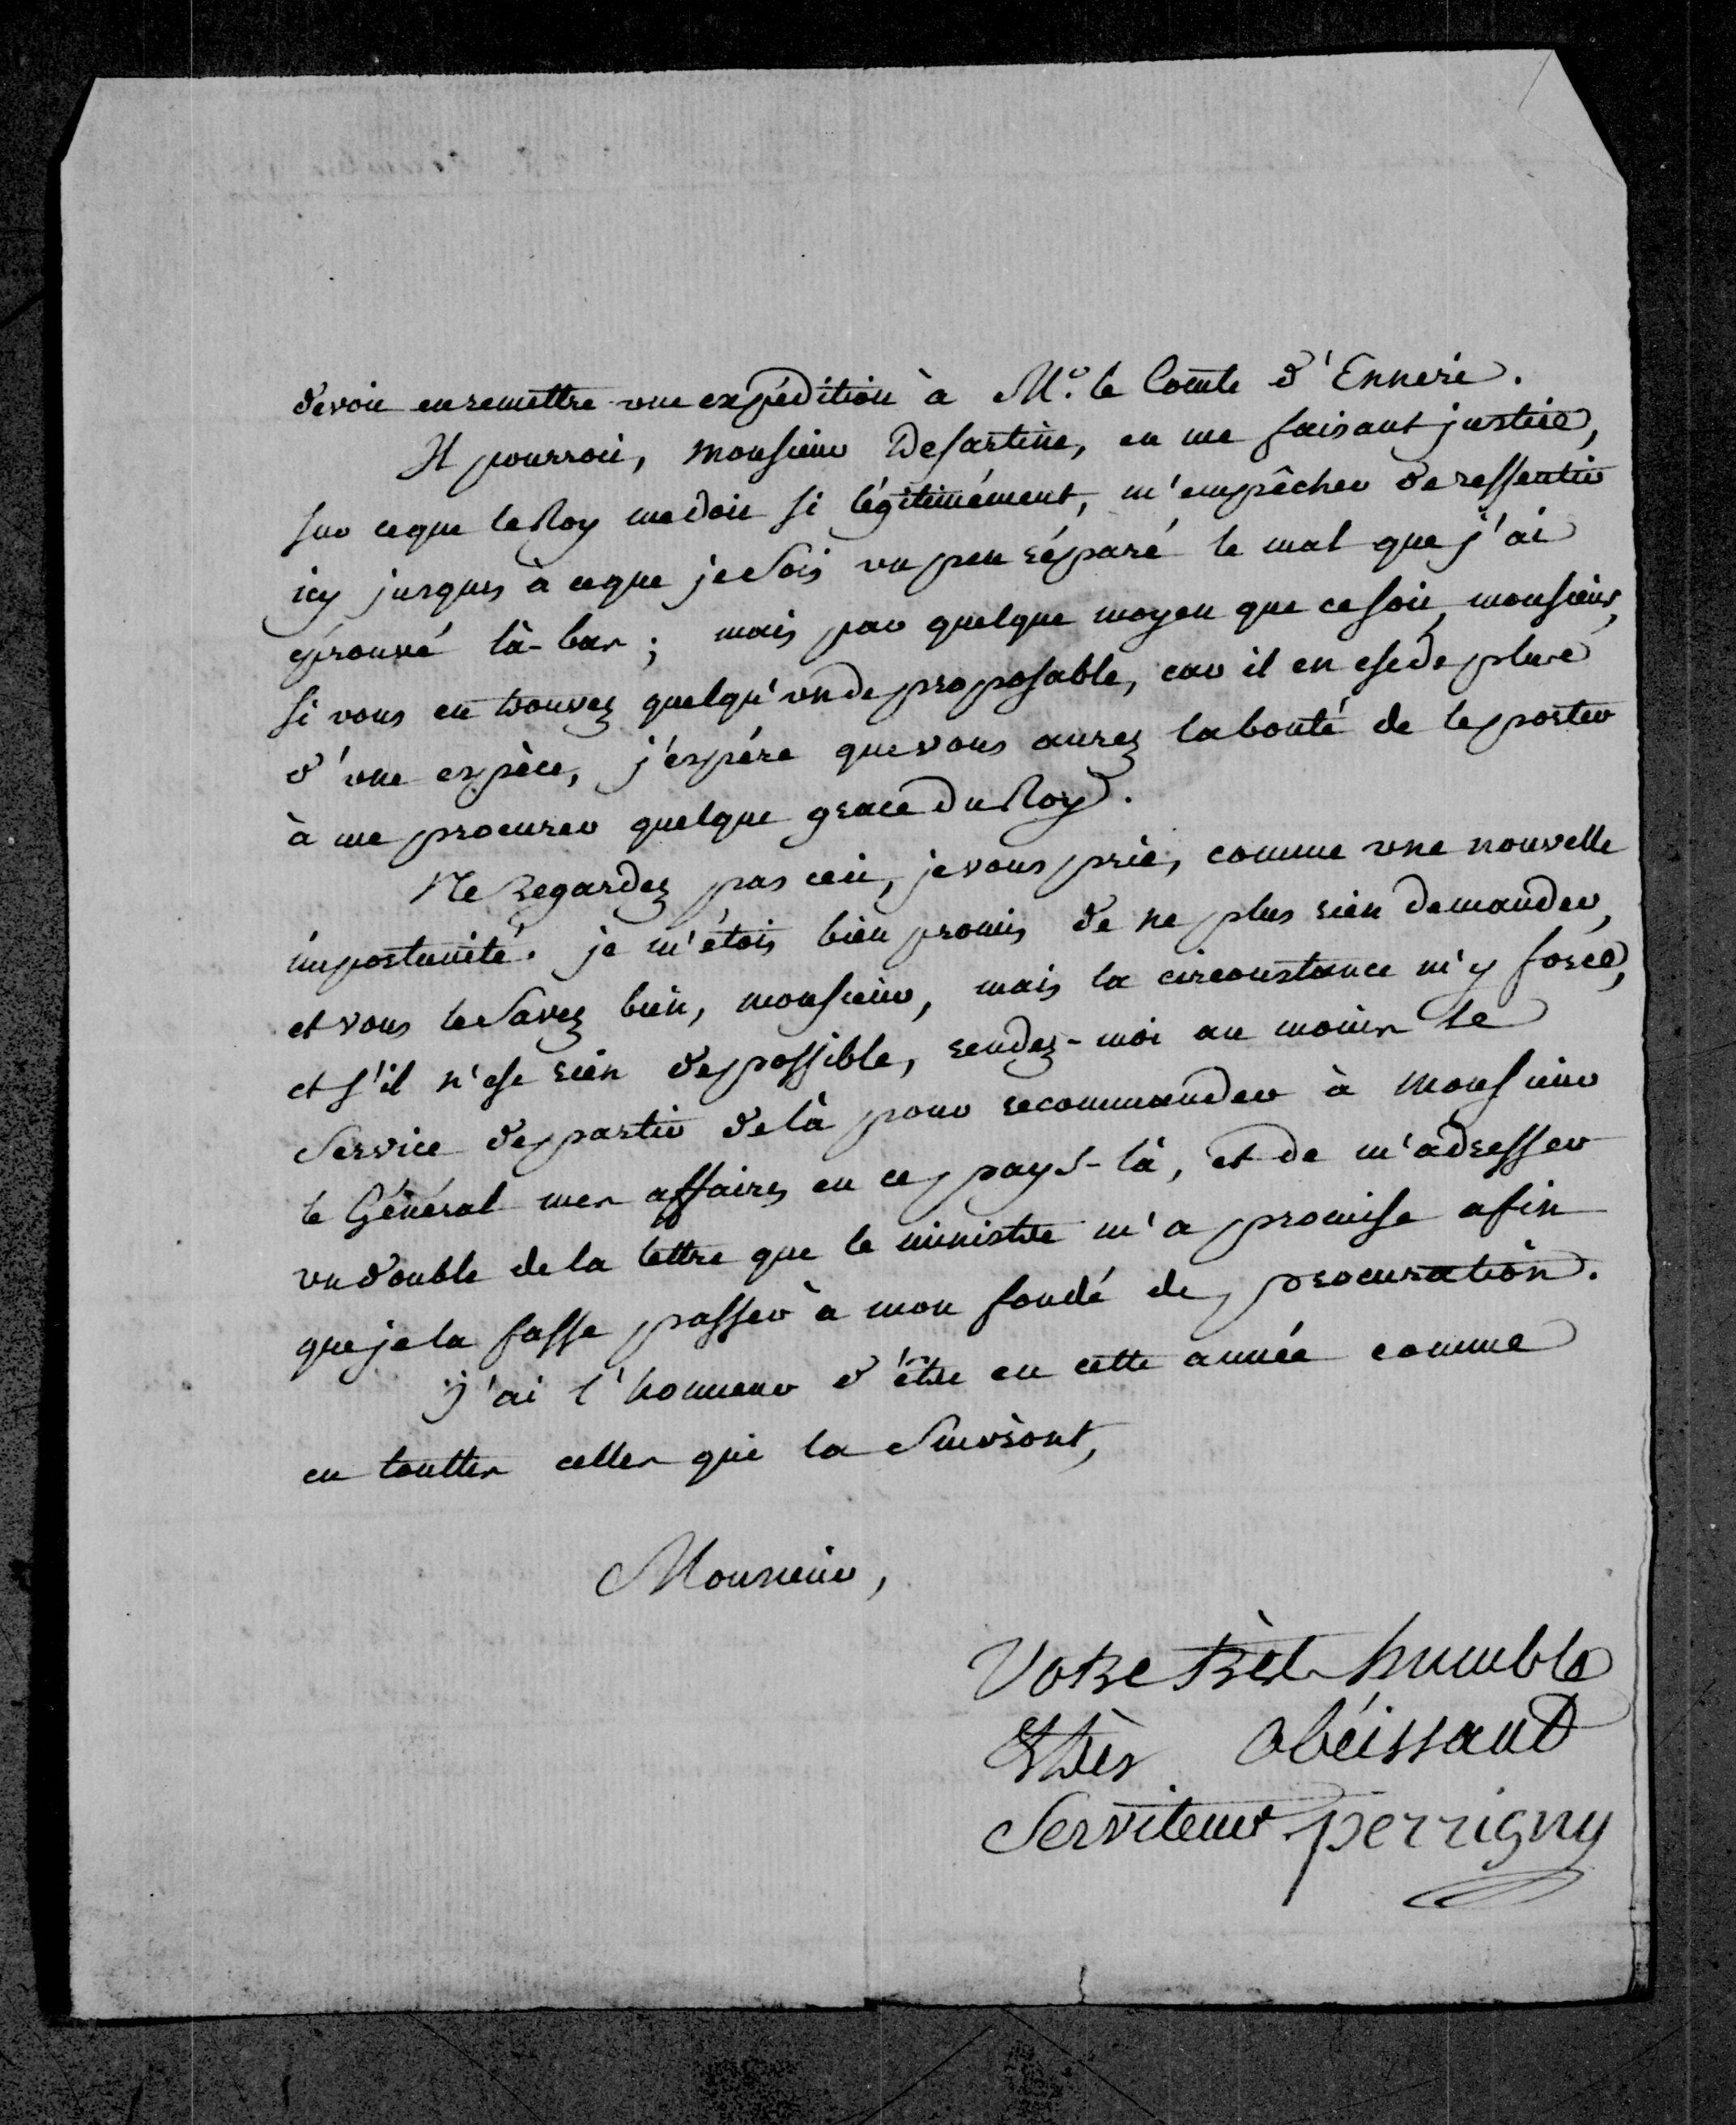 devoir en remettre une expédition à Mr. le Comte d'Enneri.
Il pourroit, Monsieur De sartine, en me faisant justice,
sur ce que le Roy me doit si légitimément, m'empêcher de ressentir
icy jusques à ce que je sois un peu réparé le mal que j'ai
éprouvé là-bas ; mais par quelque moyen que ce soit, monsieur,
si vous en trouvez quelqu'un de proposable, car il en est de plus
d'une espèce, j'espére que vous aurez la bonté de le porter
à me procurer quelque grace du Roy.
Ne Regardez pas ceci, je vous prie, comme une nouvelle
importunité. je m'étois bien promis de ne plus rien demander,
et vous le Savez bien, monsieur, mais la circonstance m'y force,
et s'il n'est rien de possible, rendez-moi au moins le
Service de partir de là pour recommander à Monsieur
le Général mes affaires en ce pays-là, et de m'adresser
un double de la lettre que le ministre m'a promise afin
que je la fasse passer à mon fondé de procuration.
J'ai l'honneur d'être en cette année comme
en touttes celles qui la Suivront,
Monsieur,
Votre très humble
& très obéissant
Serviteur perrigny